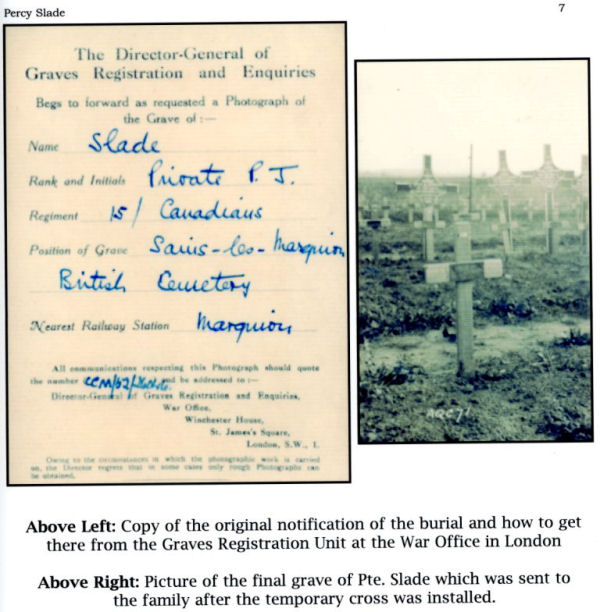 Percy Slade
7
The Director-General of
Graves Registration and Enquiries
Begs to forward as requested a Photograph of
the Grave of :—
Name Slade
Rank and Initials Private P. J.
Regiment 15/ Canadians
Position of Grave Sains-les-Marquion
British Cemetery
Nearest Railway Station Marquion
All communications respecting this Photograph should quote
the number CCM/52/ and be addressed to :—
Director-General of Graves Registration and Enquiries,
War Office,
Winchester House,
St. James's Square,
London, S.W., 1.
Owing to the circumstances in which the photographic work is carried
on, the Director regrets that in some cases only rough Photographs can
be obtained.
Above Left: Copy of the original notification of the burial and how to get
there from the Graves Registration Unit at the War Office in London
Above Right: Picture of the final grave of Pte. Slade which was sent to
the family after the temporary cross was installed.